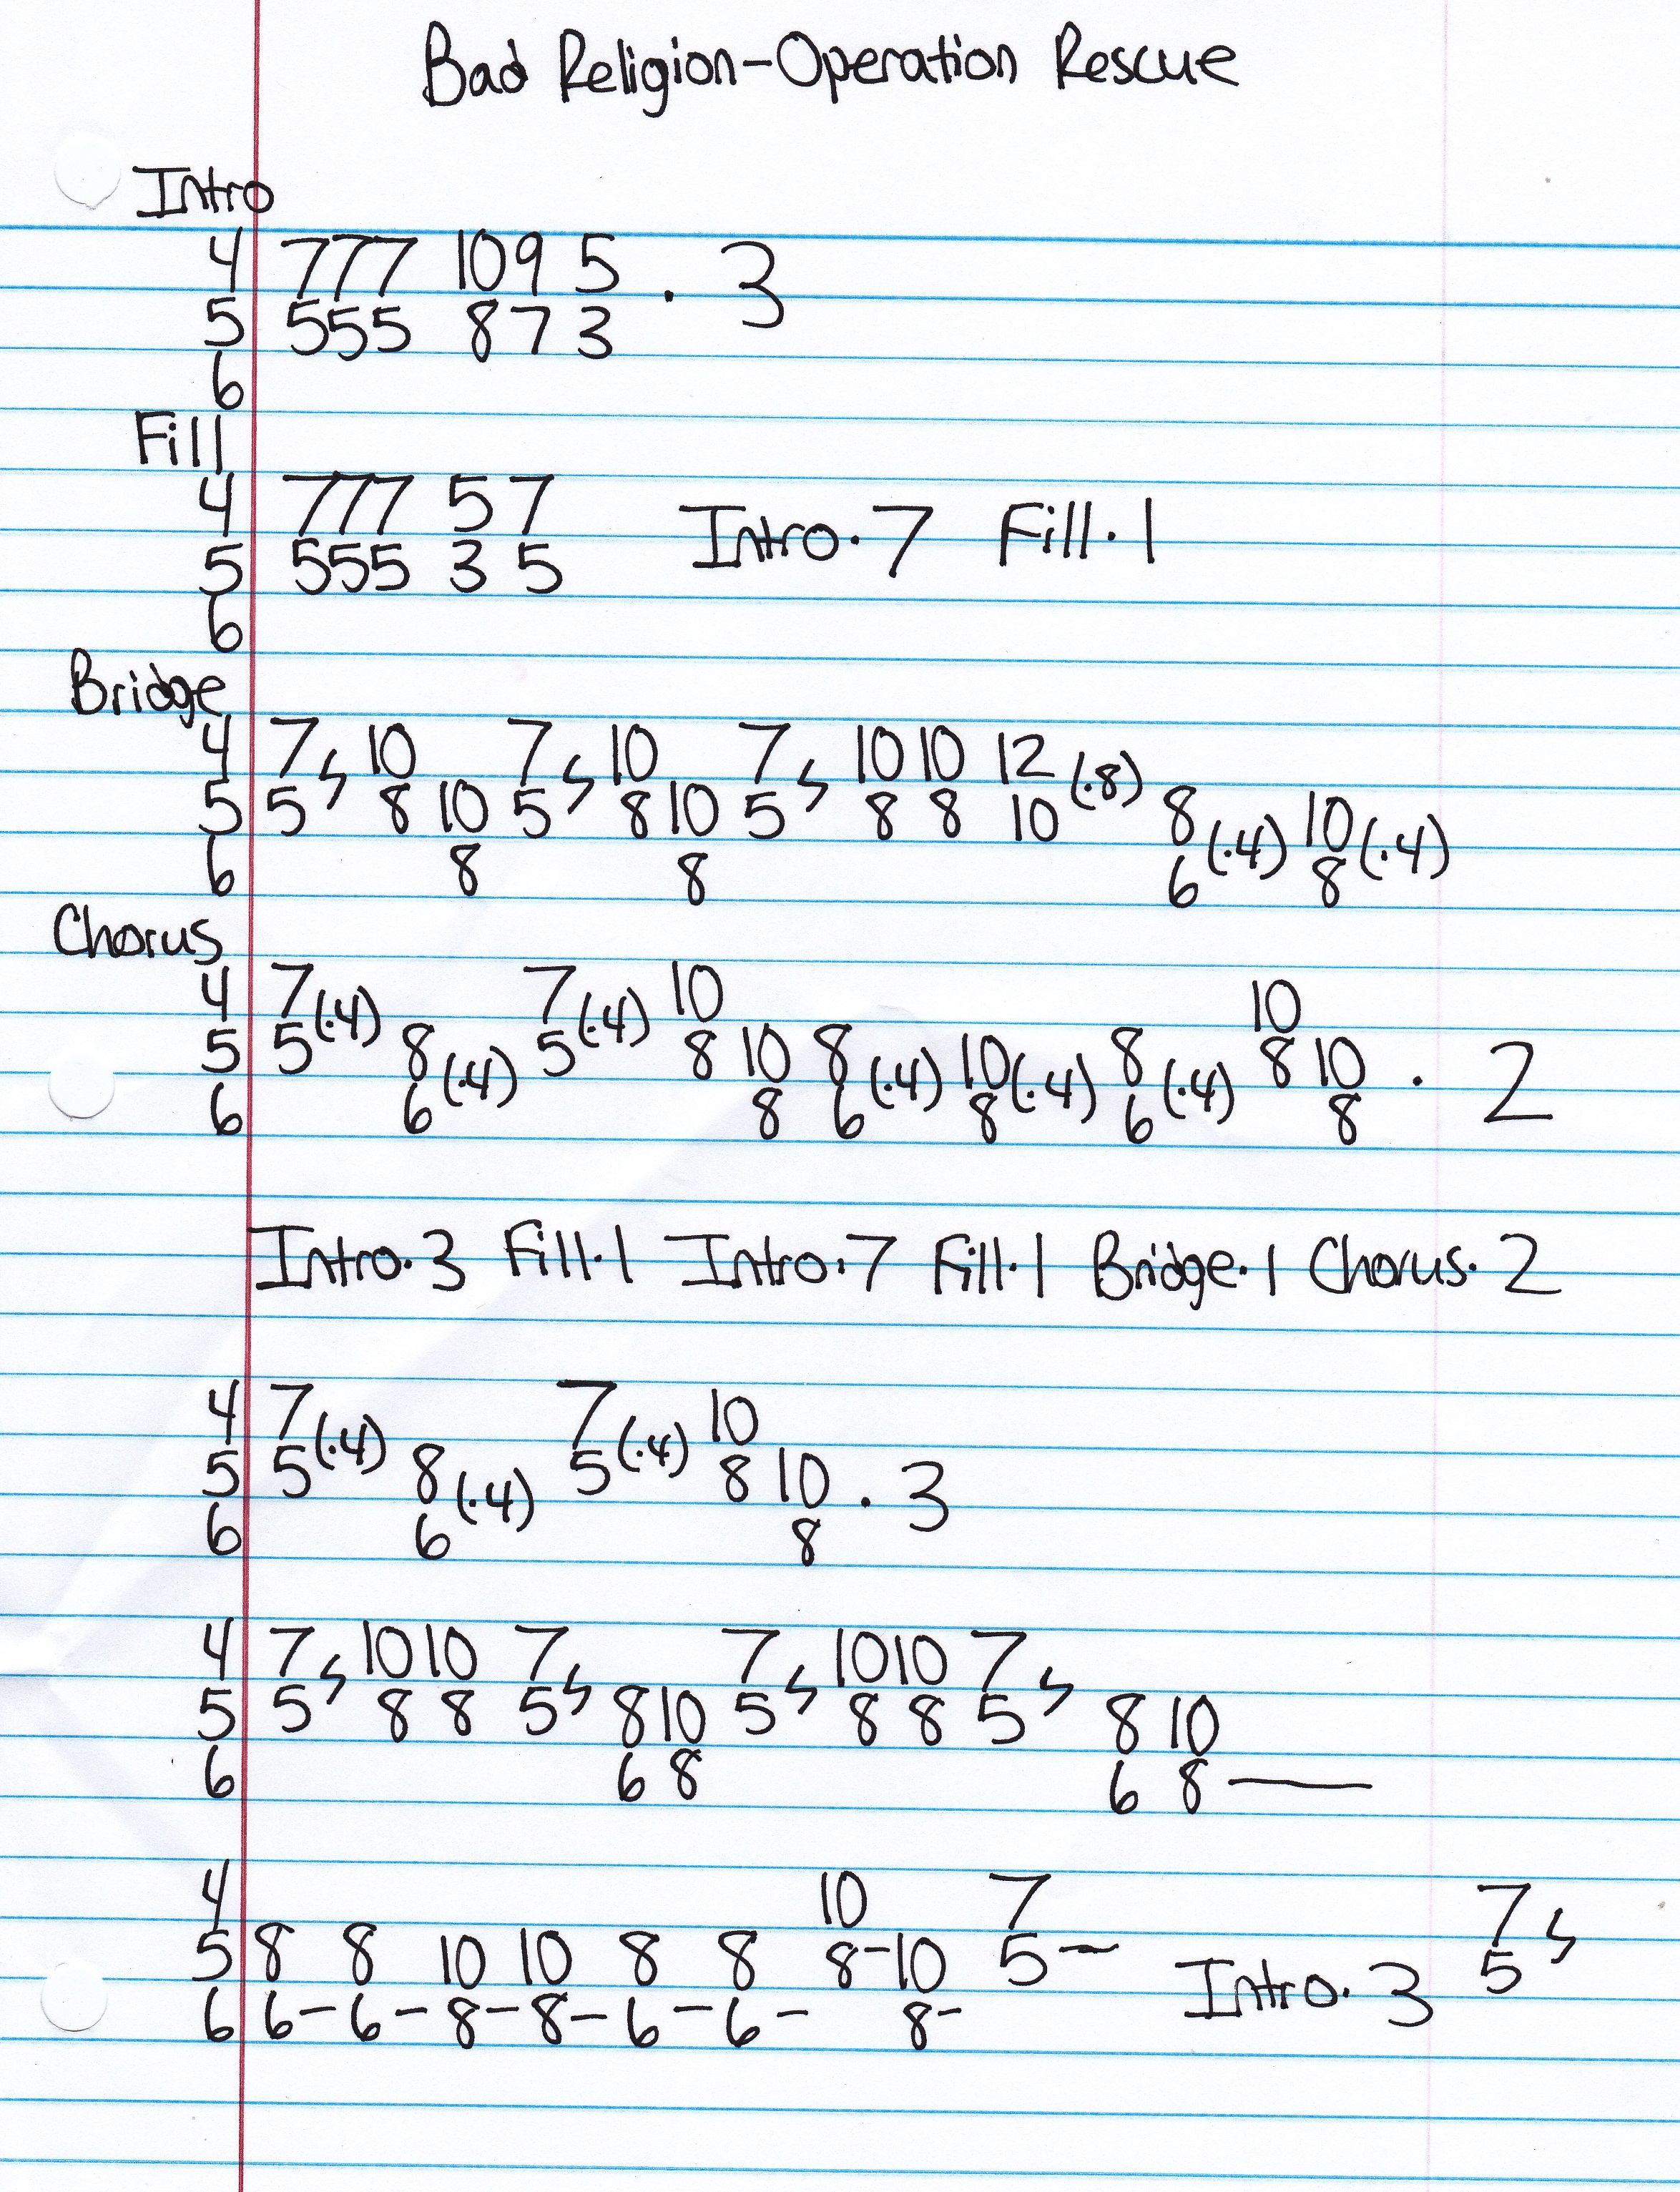 Bad Religion-Operation Rescue
Intro
4 777 10 9 5
5 555 8 7 3 · 3
6
Fill
4 777 5 7
5 555 3 5 Intro·7 Fill·1
6
Bridge
4 7 ϟ 10 7 ϟ 10 7 ϟ 10 10 12 (·8)
5 5 8 10 5 8 10 5 8 8 10 8 (·4) 10 (·4)
6 8 8 6 8
Chorus
4 7 (·4) 7 (·4) 10 10
5 5 8 (·4) 5 8 10 8 (·4) 10 (·4) 8 (·4) 8 10 · 2
6 6 8 6 8 6 8
Intro·3 Fill·1 Intro·7 Fill·1 Bridge·1 Chorus·2
4 7 (·4) 7 (·4) 10
5 5 8 (·4) 5 8 10 · 3
6 6 8
4 7 ϟ 10 10 7 ϟ 7 ϟ 10 10 7 ϟ
5 5 8 8 5 8 10 5 8 8 5 8 10
6 6 8 6 8 —
4 10 7 7 ϟ
5 8 8 10 10 8 8 8-10 5 — Intro·3 5
6 6-6-8-8-6-6- 8-